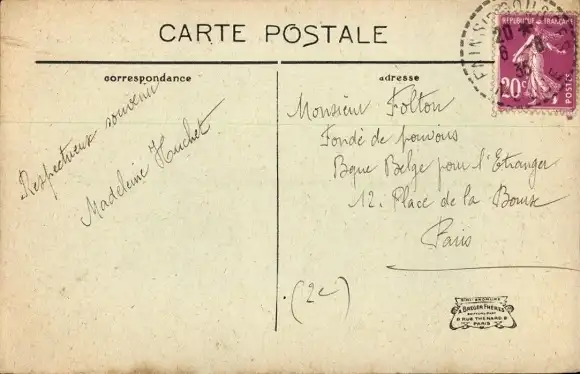 CARTE POSTALE
correspondance
adresse
RÉPUBLIQUE FRANÇAISE
20c
POSTES
20 *
6 8
35
Respectueux souvenir
Madeleine Huchet
Monsieur Folton
Fondé de pouvoirs
Bque Belge pour l'Etranger
12. Place de la Bourse
Paris
(2c)
A. BREGER FRÈRES
9 RUE THÉNARD. 9
PARIS